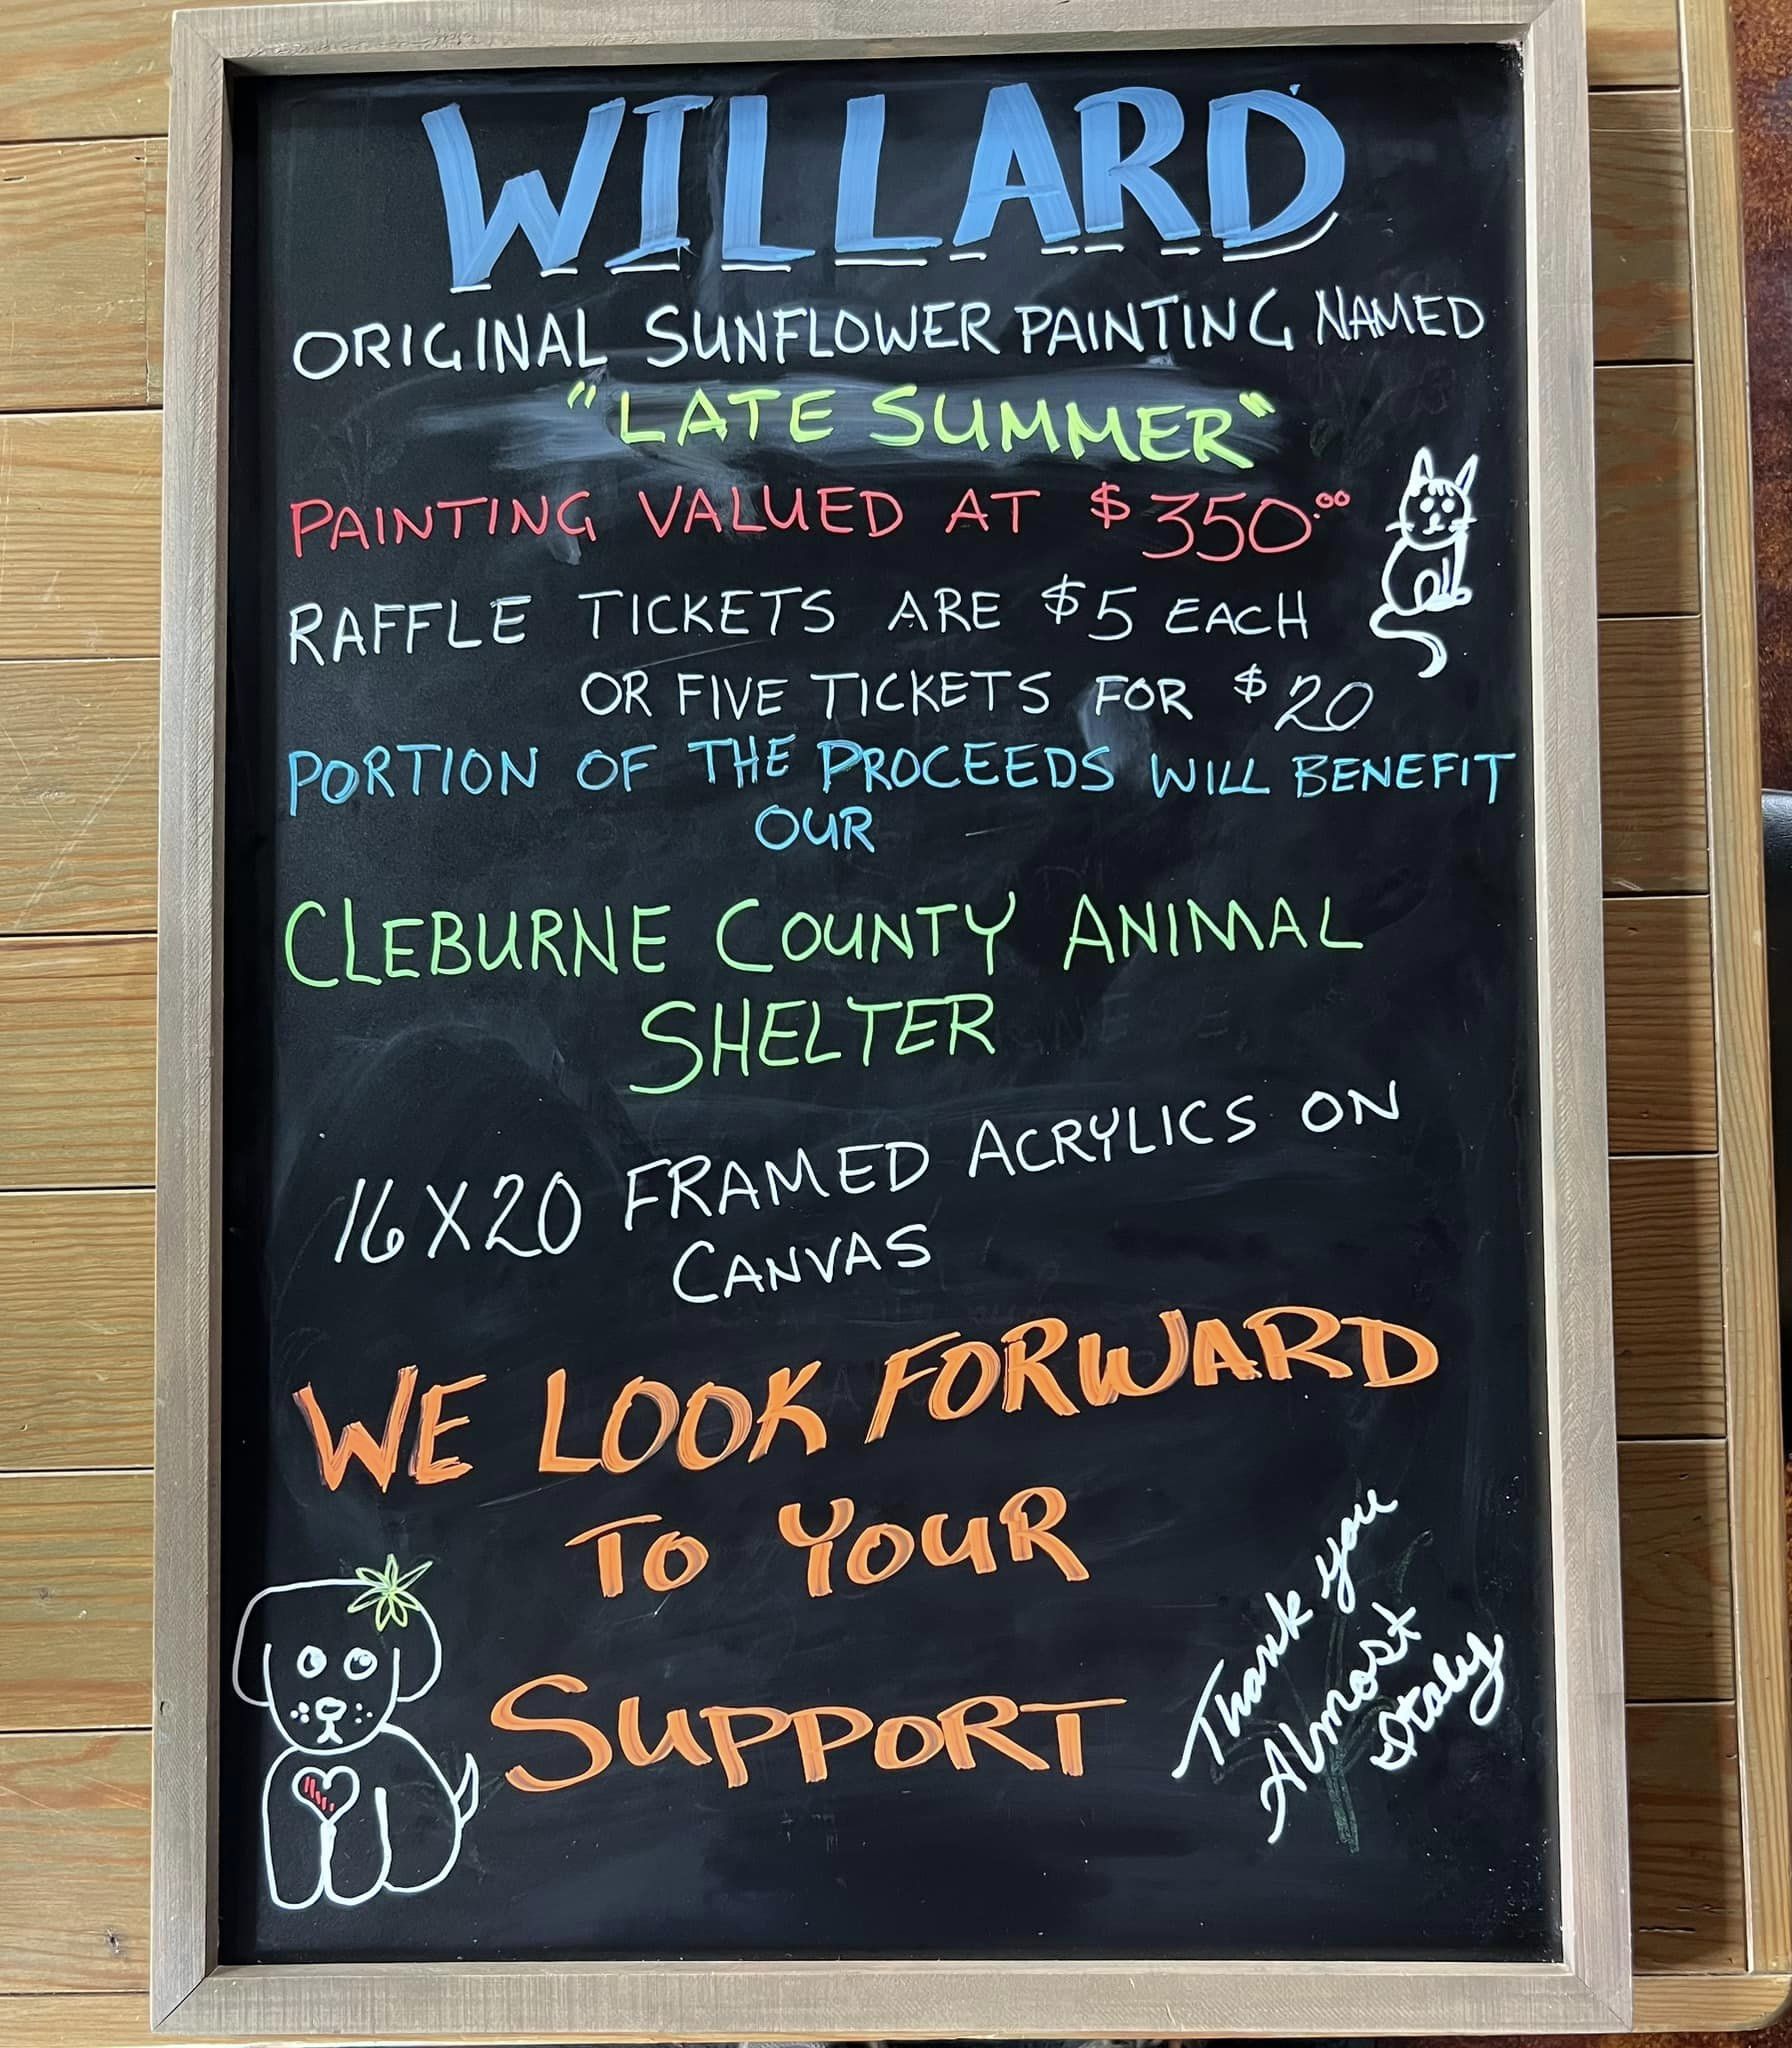 WILLARD
ORIGINAL SUNFLOWER PAINTING NAMED
"LATE SUMMER"
PAINTING VALUED AT $350.00
RAFFLE TICKETS ARE $5 EACH
OR FIVE TICKETS FOR $20
PORTION OF THE PROCEEDS WILL BENEFIT
OUR
CLEBURNE COUNTY ANIMAL
SHELTER
16X20 FRAMED ACRYLICS ON
CANVAS
WE LOOK FORWARD
TO YOUR
SUPPORT
Thank you
Almost
Italy